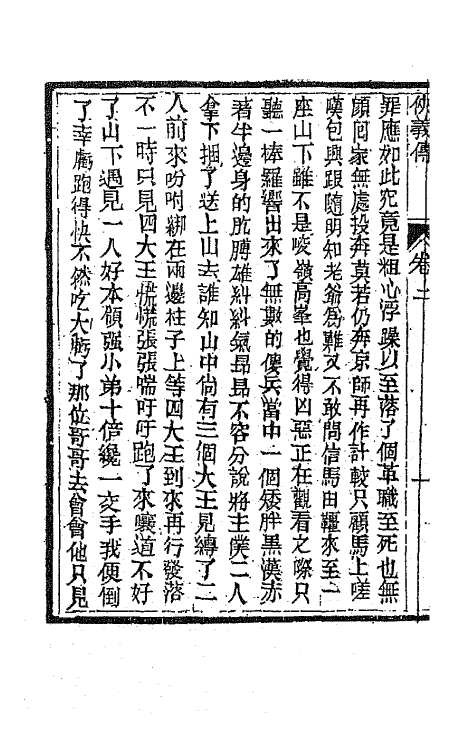 俠義傳
卷二
罪應如此究竟是粗心浮躁以至落了個革職至死也無
顏回家無處投奔莫若仍奔京師再作計較只顧馬上嗟
嘆包興跟隨明知老爺為難又不敢問信馬由韁來至一
座山下雖不是峻嶺高峯也覺得凶惡正在觀看之際只
聽一棒羅響出來了無數的僂兵當中一個矮胖黑漢赤
著半邊身的肐膊雄糾糾氣昂昂不容分說將主僕二人
拿下捆了送上山去誰知山中尚有三個大王見縛了二
人前來吩咐綁在兩邊柱子上等四大王到來再行發落
不一時只見四大王慌慌張張喘吁吁跑了來嚷道不好
了山下遇見一人好本領强小弟十倍纔一交手我便倒
了幸虧跑得快不然吃大虧了那位哥哥去會會他只見